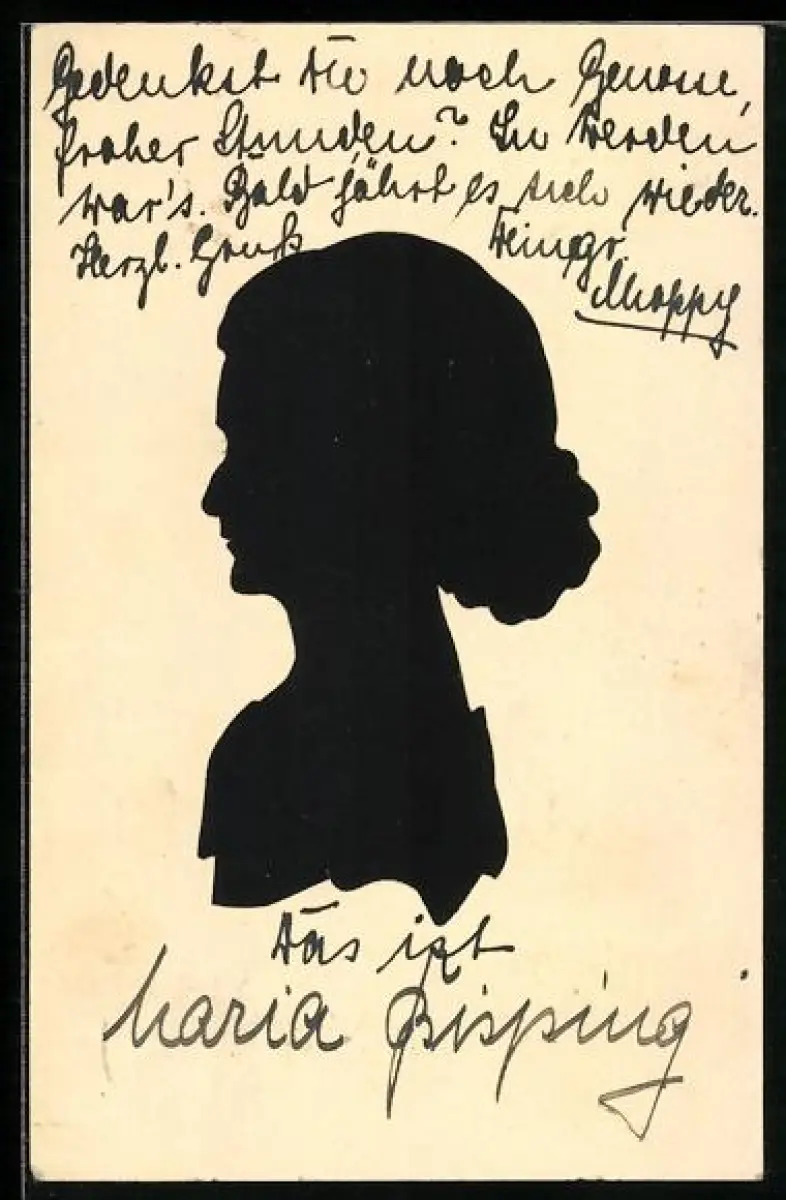 Gedenkst Du noch Genosse,
froher Stunden? In Werden
war's. Bald jährt es sich wieder.
Herzl. Gruß
Moppy
Das ist
Maria Bisping